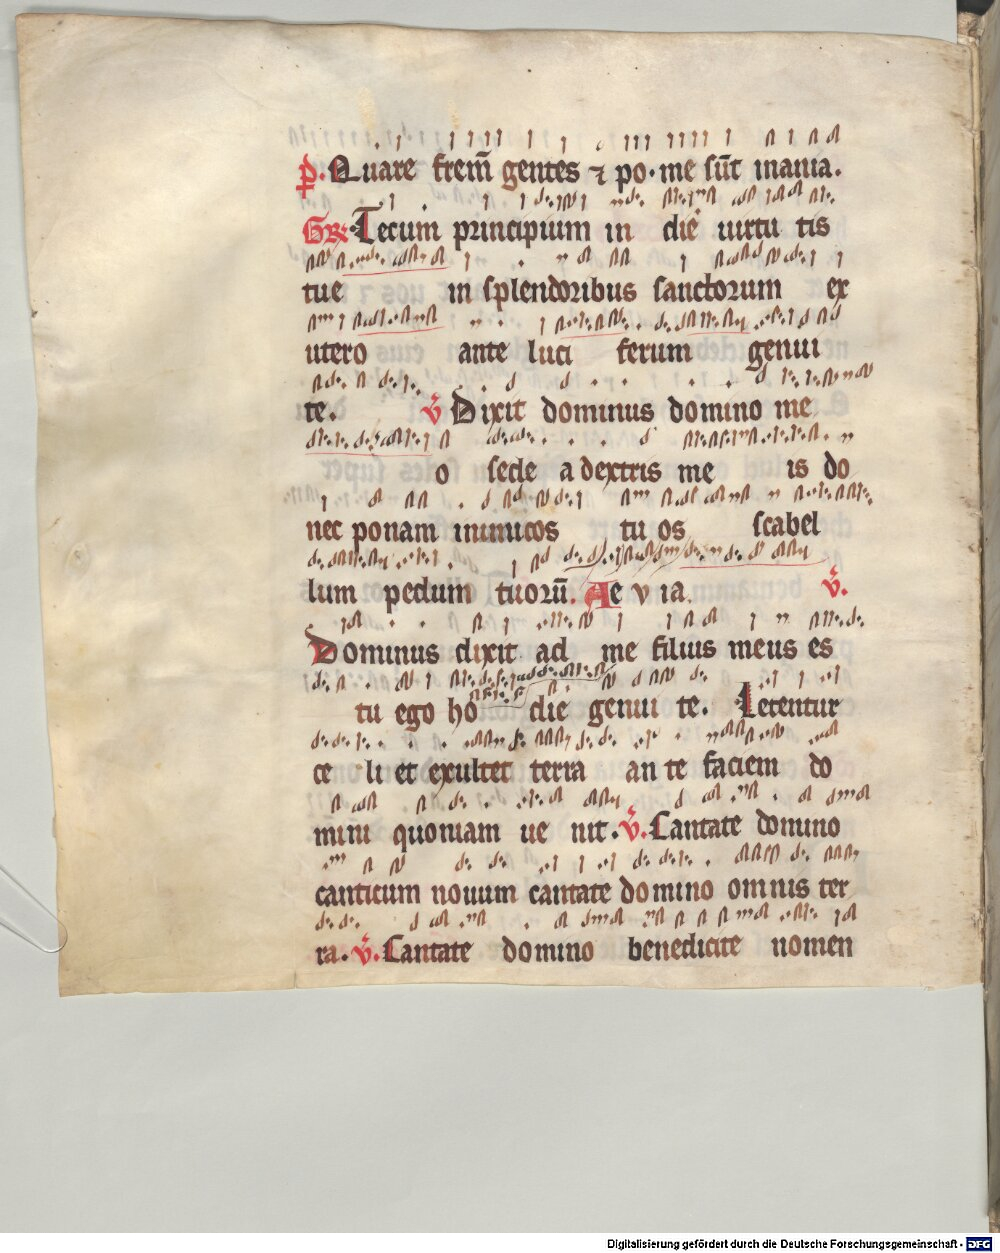 p. Quare frem̄ gentes ⁊ po·me sūt inania.
Gr Tecum principium in die uirtu tis
tue in splendoribus sanctorum ex
utero ante luci ferum genui
te. v̄ Dixit dominus domino me
o sede a dextris me is do
nec ponam inimicos tu os scabel
lum pedum tuorū. Ae v ia. v̄.
Dominus dixit ad me filius meus es
tu ego ho die genui te. Letentur
ce li et exultet terra an te faciem do
mini quoniam ue nit. v̄. Cantate domino
canticum nouum cantate domino omnis ter
ra. v̄. Cantate domino benedicite nomen
Digitalisierung gefördert durch die Deutsche Forschungsgemeinschaft - DFG